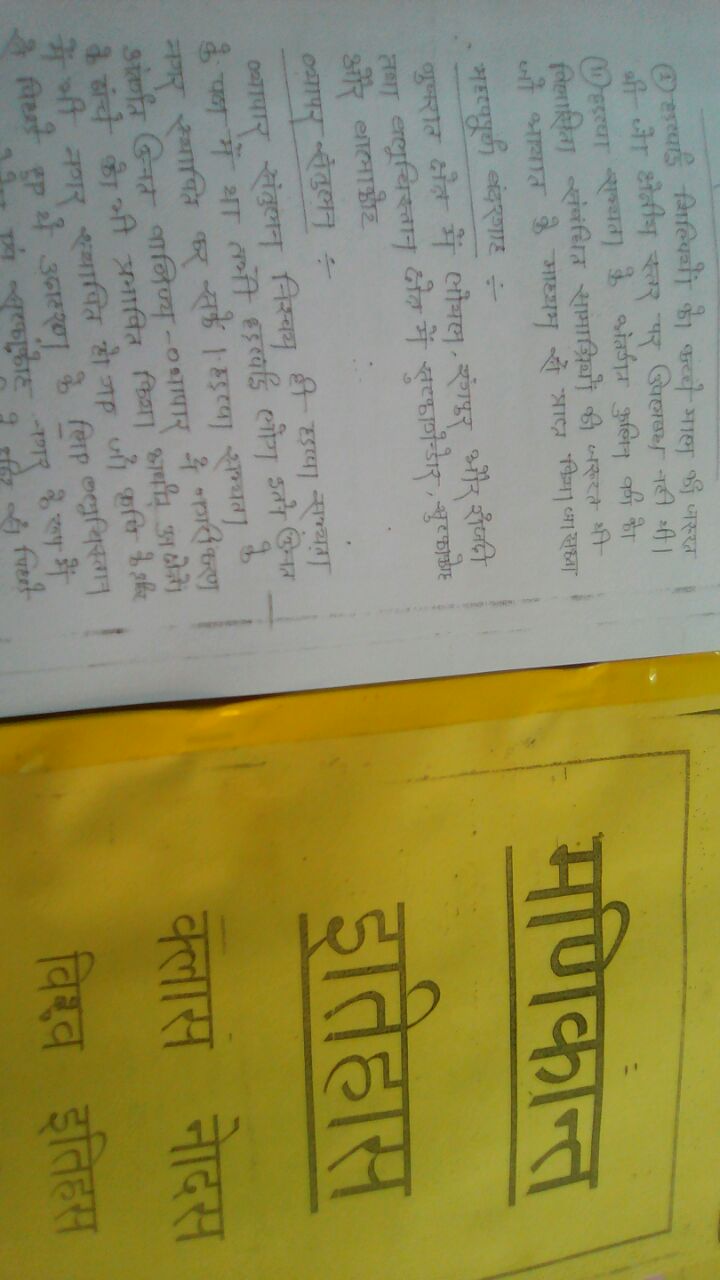 ① हड़प्पाई शिल्पियों को कच्चे माल की जरूरत
थी जो क्षेत्रीय स्तर पर उपलब्ध नहीं थी।
② हड़प्पा सभ्यता के अंतर्गत कुलिन वर्ग को
विलासिता संबंधित सामग्रियों की जरूरत थी
जो आयात के माध्यम से प्राप्त किया जा सका
महत्वपूर्ण बंदरगाह ÷
गुजरात क्षेत्र में लोथल, रंगपुर और रोजदि
तथा बलुचिस्तान क्षेत्र में सुत्कागेंडोर, सुत्काकोह
और बालाकोट
व्यापार संतुलन ÷
व्यापार संतुलन निश्चय ही हड़प्पा सभ्यता
के पक्ष में था तभी हड़प्पाई लोग इतने उन्नत
नगर स्थापित कर सके। हड़प्पा सभ्यता के
अंतर्गत उन्नत वाणिज्य-व्यापार ने नगरीकरण
के ढांचे को भी प्रभावित किया क्योंकि
में भी नगर स्थापित हो गए जो कृषि
से पिछड़े हुए थे उदाहरण के लिए बलुचिस्तान
मणिकान्त
इतिहास
क्लास नोट्स
विश्व इतिहास